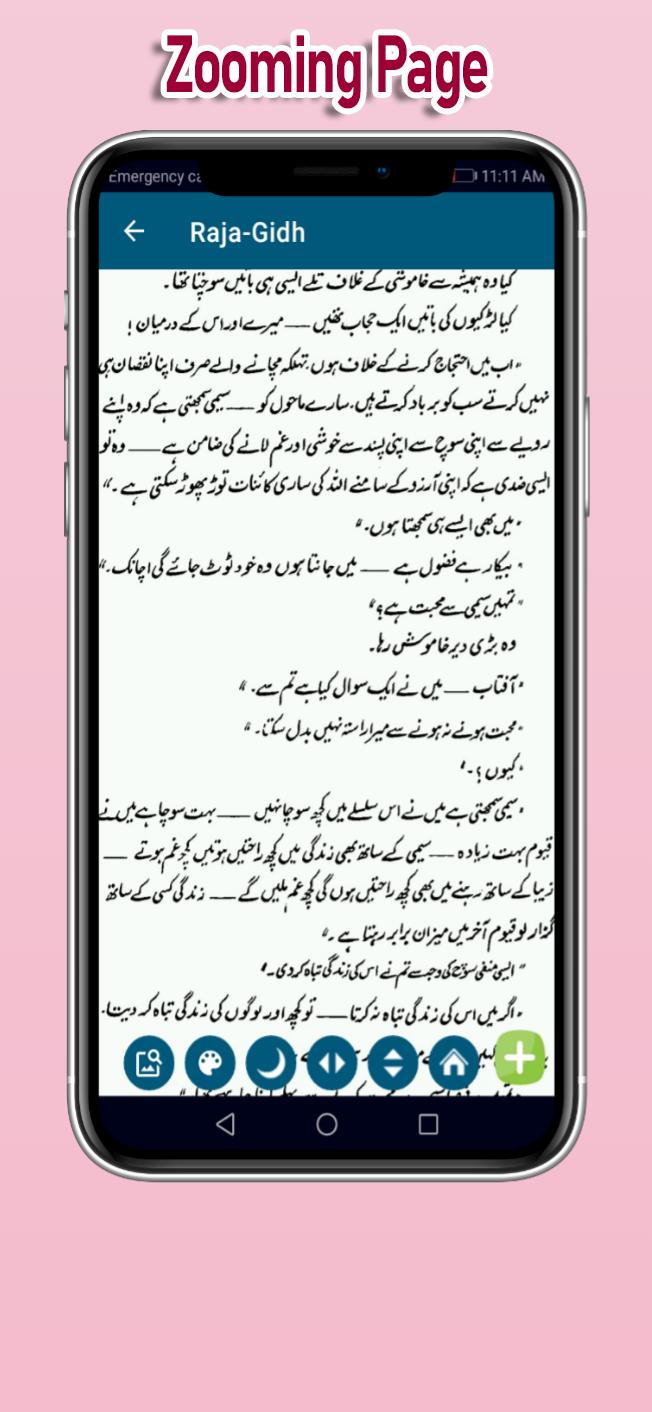 Zooming Page
Emergency ca
11:11 AM
Raja-Gidh
کیا وہ ہمیشہ سے خاموشی کے غلاف تلے ایسی ہی باتیں سوچتا تھا۔
کیا لڑکیوں کی باتیں ایک حجاب تھیں ـــــ میرے اور اس کے درمیان !
"اب میں احتجاج کرنے کے خلاف ہوں. تہلکہ مچانے والے صرف اپنا نقصان ہی
نہیں کرتے سب کو برباد کرتے ہیں. سارے ماحول کو ـــــ سیمی سمجھتی ہے کہ وہ اپنے
رویے سے اپنی سوچ سے اپنی پسند سے خوشی اور غم لانے کی ضامن ہے ـــــ وہ تو
ایسی ضدی ہے کہ اپنی آرزو کے سامنے اللہ کی ساری کائنات توڑ پھوڑ سکتی ہے۔"
"میں بھی ایسے ہی سمجھتا ہوں۔"
"بیکار ہے فضول ہے ـــــ میں جانتا ہوں وہ خود ٹوٹ جائے گی اچانک۔"
"تمہیں سیمی سے محبت ہے؟"
وہ بڑی دیر خاموش رہا۔
"آفتاب ـــــ میں نے ایک سوال کیا ہے تم سے۔"
"محبت ہونے نہ ہونے سے میرا راستہ نہیں بدل سکتا۔"
"کیوں؟۔"
"سیمی سمجھتی ہے میں نے اس سلسلے میں کچھ سوچا نہیں ـــــ بہت سوچا ہے میں نے
قیوم بہت زیادہ ـــــ سیمی کے ساتھ بھی زندگی میں کچھ راحتیں ہوتیں کچھ غم ہوتے ـــــ
زیبا کے ساتھ رہنے میں بھی کچھ راحتیں ہوں گی کچھ غم ملیں گے ـــــ زندگی کسی کے ساتھ
گزار لو قیوم آخر میں میزان برابر رہتا ہے۔"
"ایسی منفی سوچ کی وجہ سے تم نے اس کی زندگی تباہ کر دی۔"
"اگر میں اس کی زندگی تباہ نہ کرتا ـــــ تو کچھ اور لوگوں کی زندگی تباہ کر دیتا۔